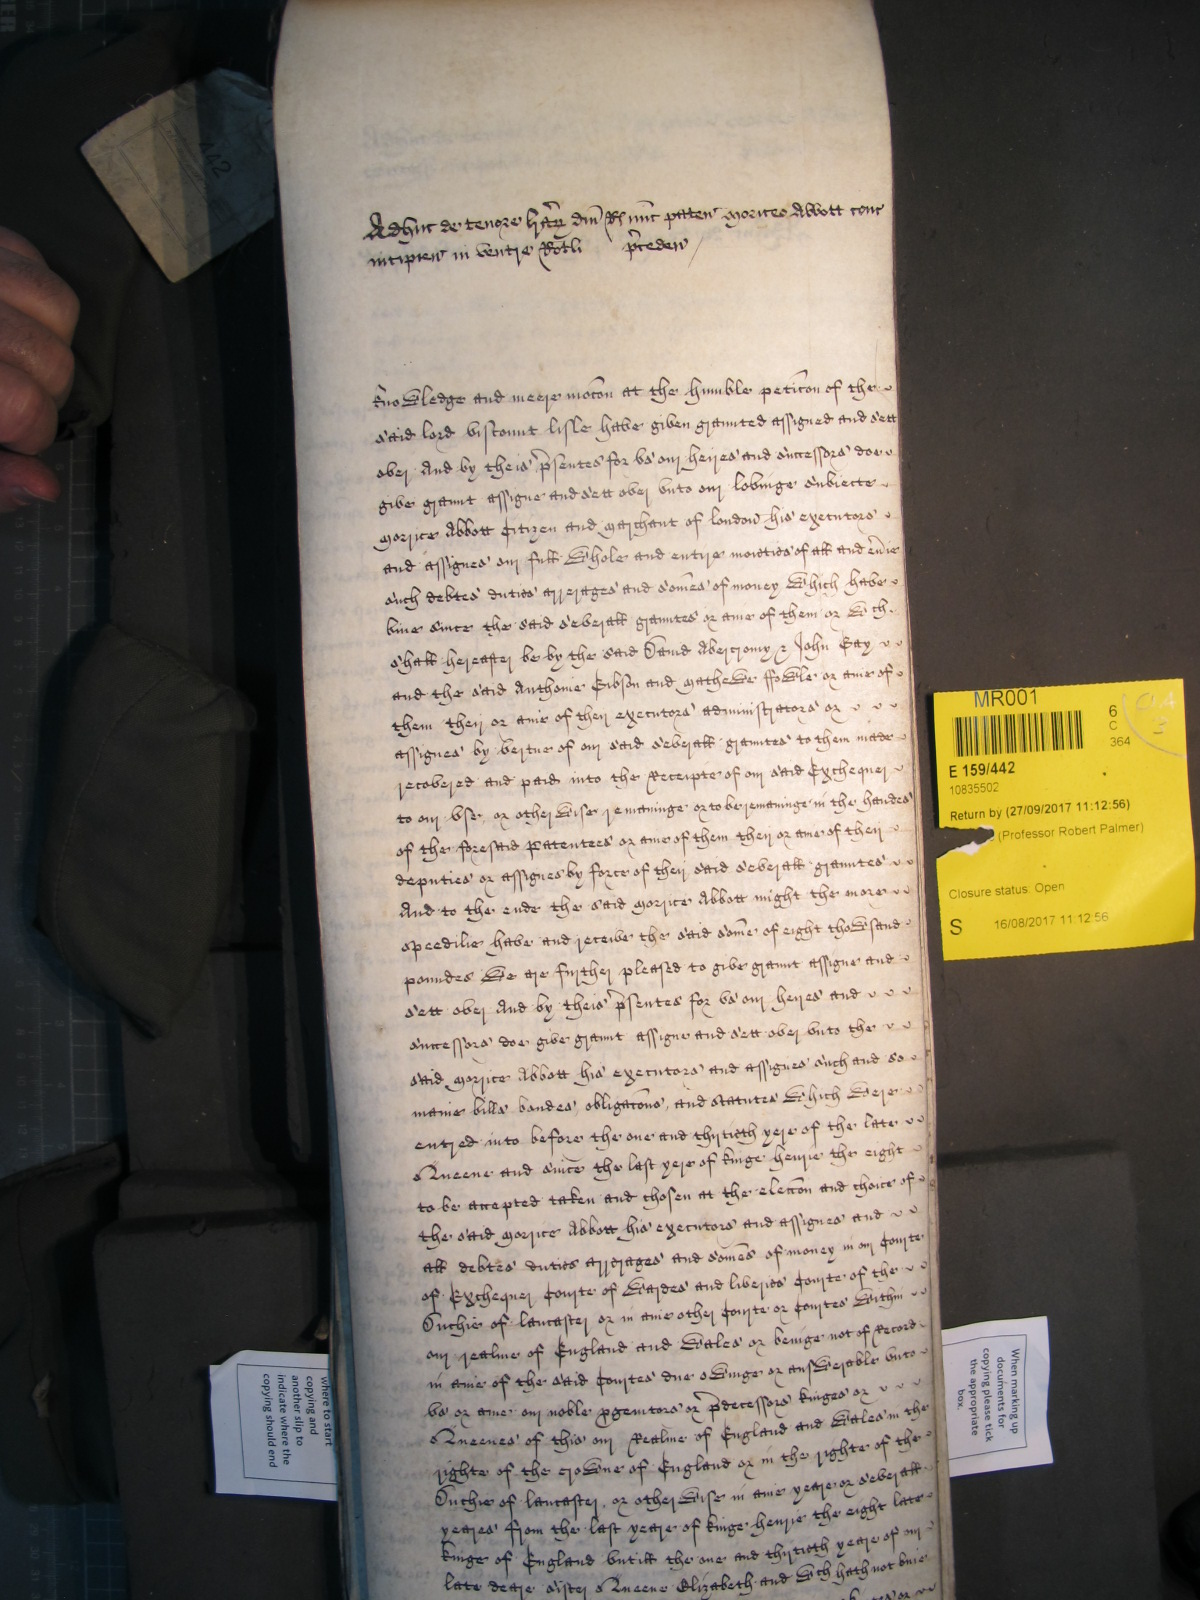 Adhuc de tenore lr̃ar̃ dñi R̃ nũc paten Morice Abbott conc
incipien in ventre Rotli p̃ceden
knowledge and meere moc̃on at the humble petic̃on of the
said lord viscount lisle have given graunted assigned and sett
over And by theis p̃sentes for vs our heires and successors doe
give graunt assigne and sett over vnto our lovinge subiecte
Morice Abbott Citizen and Marchant of london his executors
and assignes our full whole and entire moieties of all and ev̾ie
such debtes duties arrerages and som̃es of money which have
bine since the said severall grauntes or anie of them or wch
shall hereafter be by the said David Abercromy & John Gay
and the said Anthonie Gibson and Mathewe ffowle or anie of
them their or anie of their executors administrators or
assignes by vertue of our said severall grauntes to them made
recovered and paid into the Receipte of our said Exchequer
to our vse, or otherwise remaninge or to be remaninge in the handes
of the foresaid Patentees or anie of them their or anie of their
deputies or assignes by force of their said severall grauntes
And to the ende the said Morice Abbott might the more
speedilie have and receive the said som̃e of eight thowsand
poundes We are further pleased to give graunt assigne and
sett over And by theis p̃sentes for vs our heires and
successors doe give graunt assigne and sett over vnto the
said Morrice Abbott his executors and assignes such and so
manie bills bondes obligac̃ons, and statutes which were
entred into before the one and thirtieth yere of the late
Queene and since the last yere of kinge henrie the eight
to be accepted taken and chosen at the elecc̃on and choice of
the said Morrice Abbott his executors and assignes and
all debtes duties arrerages and som̃es of money in our Courte
of Exchequer Courte of Wardes and liveries Courte of the
Duchie of lancaster or in anie other Courte or Courtes within
our realme of England and Wales or beinge not of Record
in anie of the said Courtes due owinge or answerable vnto
vs or anie our noble p̱genitors or p̃decessors kinges or
Queenes of this our Realme of England and Wales in the
righte of the crowne of England or in the righte of the
Duchie of lancaster, or otherwise in anie yeare or severall
yeares from the last yeare of kinge henrie the eight late
kinge of England vntill the one and thirtieth yeare of our
late deare sister Queene Elizabeth and wch hath not bine
MR001
6
C
364
E 159/442
10835502
Return by (27/09/2017 11:12:56)
(Professor Robert Palmer)
Closure status: Open
S 16/08/2017 11:12:56
where to start
copying and
another slip to
indicate where the
copying should end
When marking up
documents for
copying please tick
the appropriate
box.